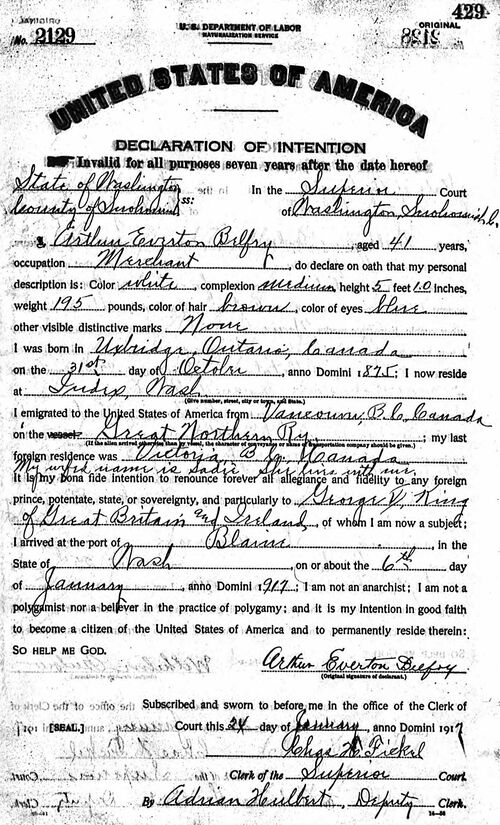 429
No. 2129
U. S. DEPARTMENT OF LABOR
NATURALIZATION SERVICE
ORIGINAL
UNITED STATES OF AMERICA
DECLARATION OF INTENTION
Invalid for all purposes seven years after the date hereof
State of Washington
County of Snohomish ss:
In the Superior Court
of Washington, Snohomish Co.
I, Arthur Everton Belfry, aged 41 years,
occupation Merchant, do declare on oath that my personal
description is: Color white, complexion medium, height 5 feet 10 inches,
weight 195 pounds, color of hair brown, color of eyes blue
other visible distinctive marks None
I was born in Uxbridge, Ontario, Canada
on the 31st day of October, anno Domini 1875; I now reside
at Index, Wash.
(Give number, street, city or town, and State.)
I emigrated to the United States of America from Vancouver, B.C. Canada
on the vessel Great Northern Ry.; my last
(If the alien arrived otherwise than by vessel, the character of conveyance or name of transportation company should be given.)
foreign residence was Victoria B.C. Canada
My wife's name is Sadie She lives with me.
It is my bona fide intention to renounce forever all allegiance and fidelity to any foreign
prince, potentate, state, or sovereignty, and particularly to George V, King
of Great Britain and Ireland, of whom I am now a subject;
I arrived at the port of Blaine, in the
State of Wash, on or about the 6th day
of January, anno Domini 1917; I am not an anarchist; I am not a
polygamist nor a believer in the practice of polygamy; and it is my intention in good faith
to become a citizen of the United States of America and to permanently reside therein:
SO HELP ME GOD.
Arthur Everton Belfry
(Original signature of declarant.)
Subscribed and sworn to before me in the office of the Clerk of
[SEAL.] Court this 24 day of January, anno Domini 1917
Chas H. Fickel
Clerk of the Superior Court.
By Adrian Hulbert, Deputy Clerk.